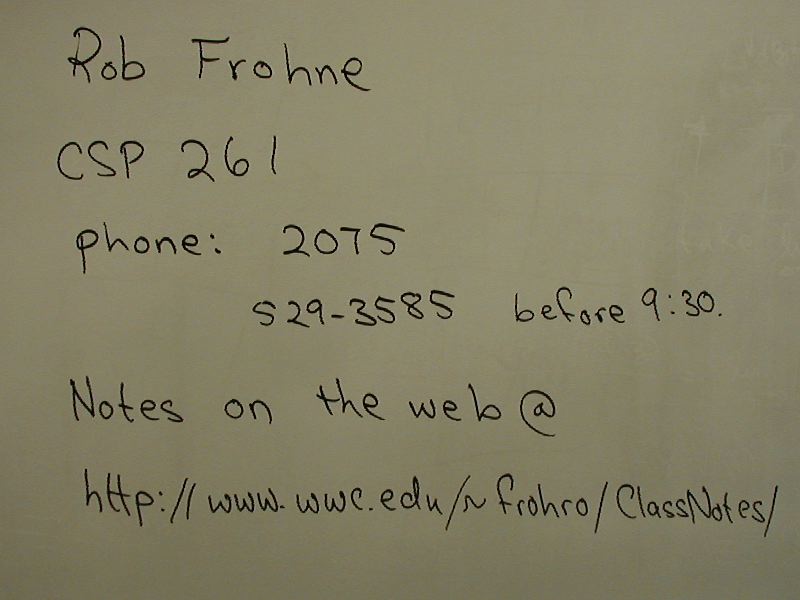 Rob Frohne
CSP 261
phone: 2075
529-3585 before 9:30.
Notes on the web @
http://www.wwc.edu/~frohro/ClassNotes/